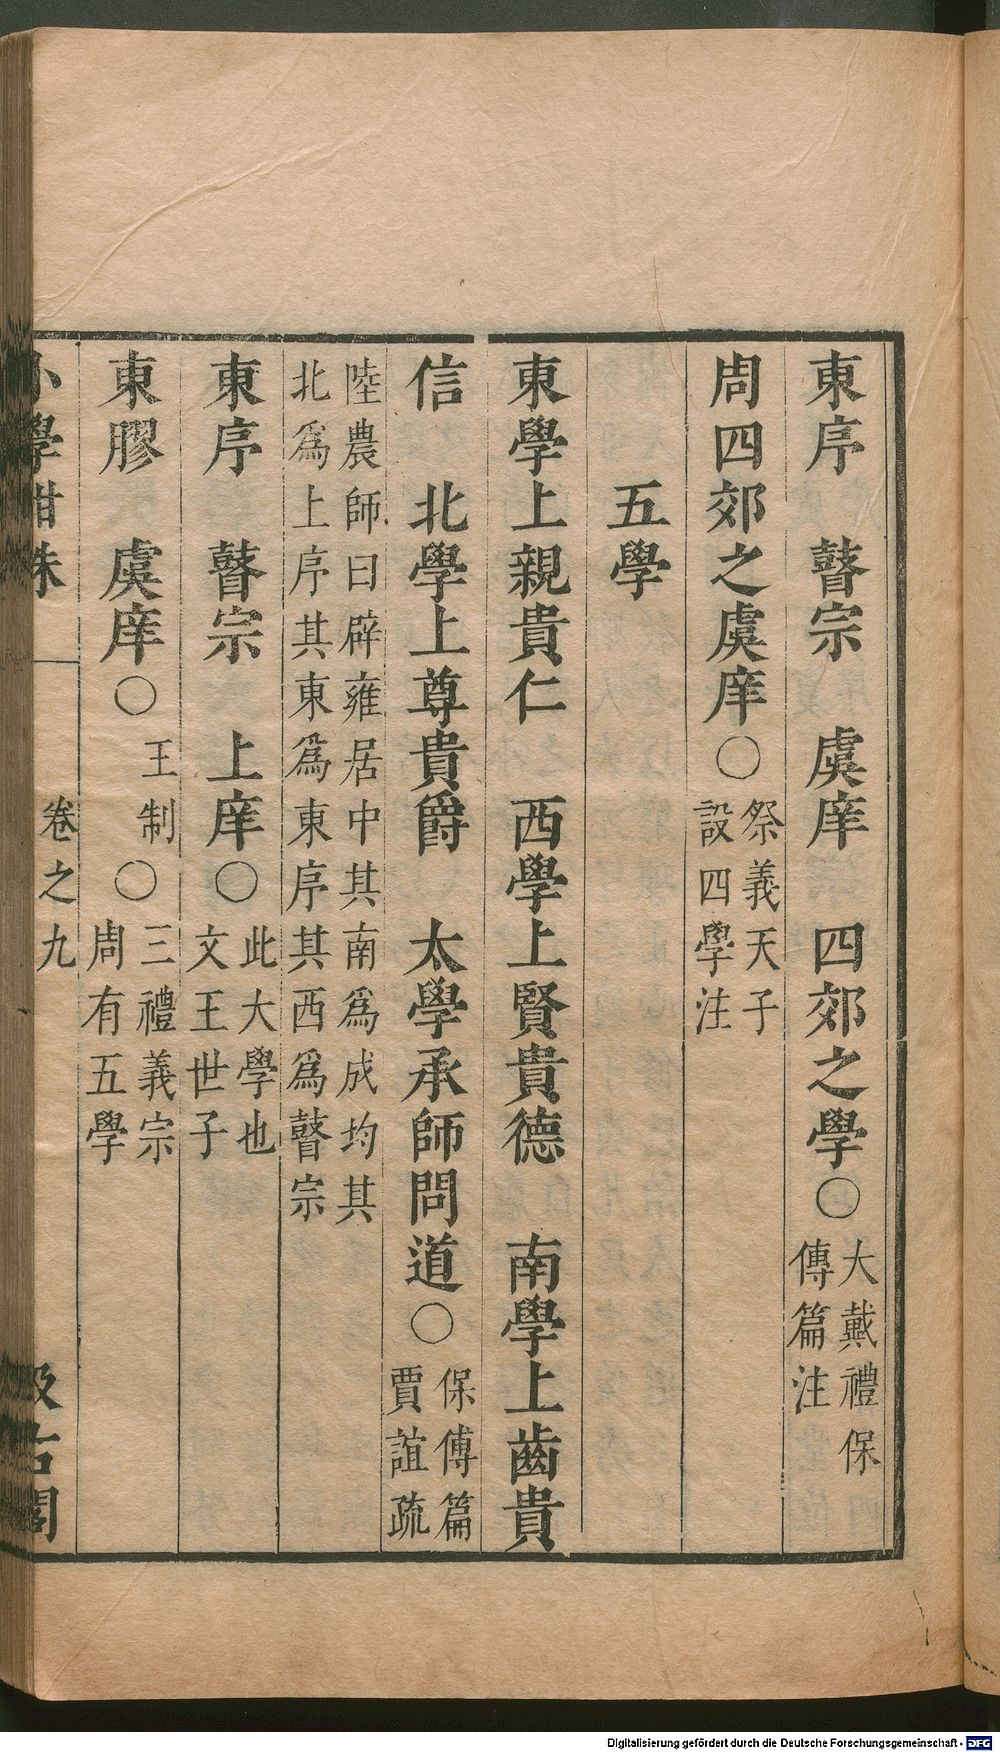 東序　瞽宗　虞庠　四郊之學○大戴禮保
傅篇注
周四郊之虞庠○祭義天子
設四學注
五學
東學上親貴仁　西學上賢貴德　南學上齒貴
信　北學上尊貴爵　太學承師問道○保傅篇
賈誼疏
陸農師曰辟雍居中其南爲成均其
北爲上庠其東爲東序其西爲瞽宗
東序　瞽宗　上庠○此大學也
文王世子
東膠　虞庠○王制○三禮義宗
周有五學
小學紺珠　卷之九　汲古閣
Digitalisierung gefördert durch die Deutsche Forschungsgemeinschaft - DFG